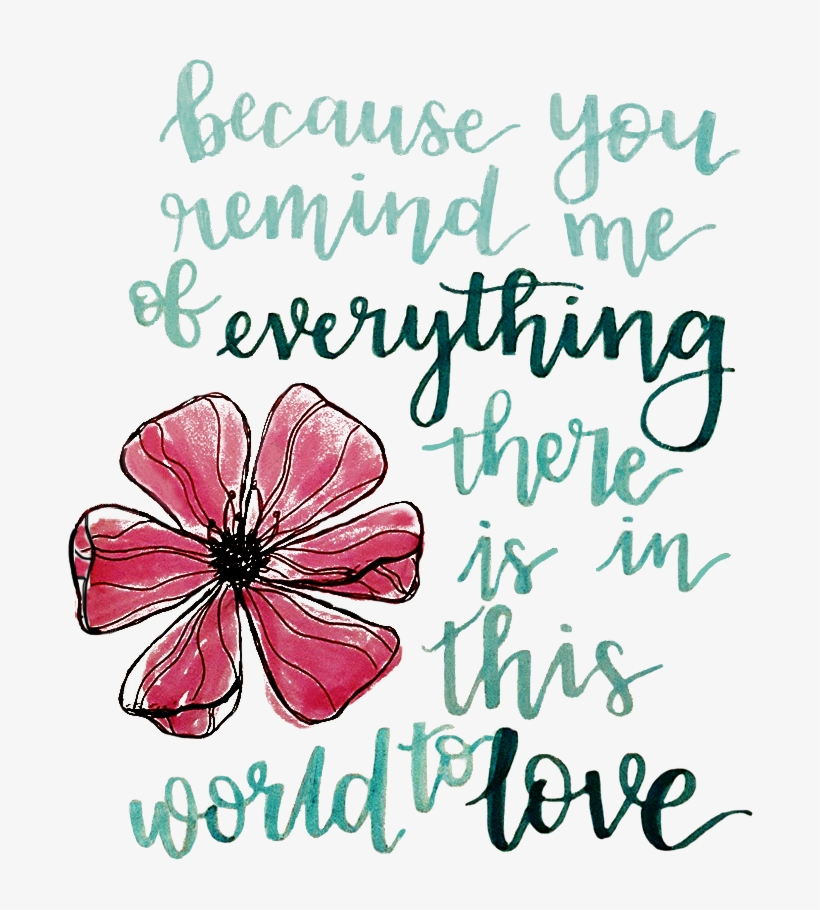 because you
remind me
of everything
there
is in
this
world to love